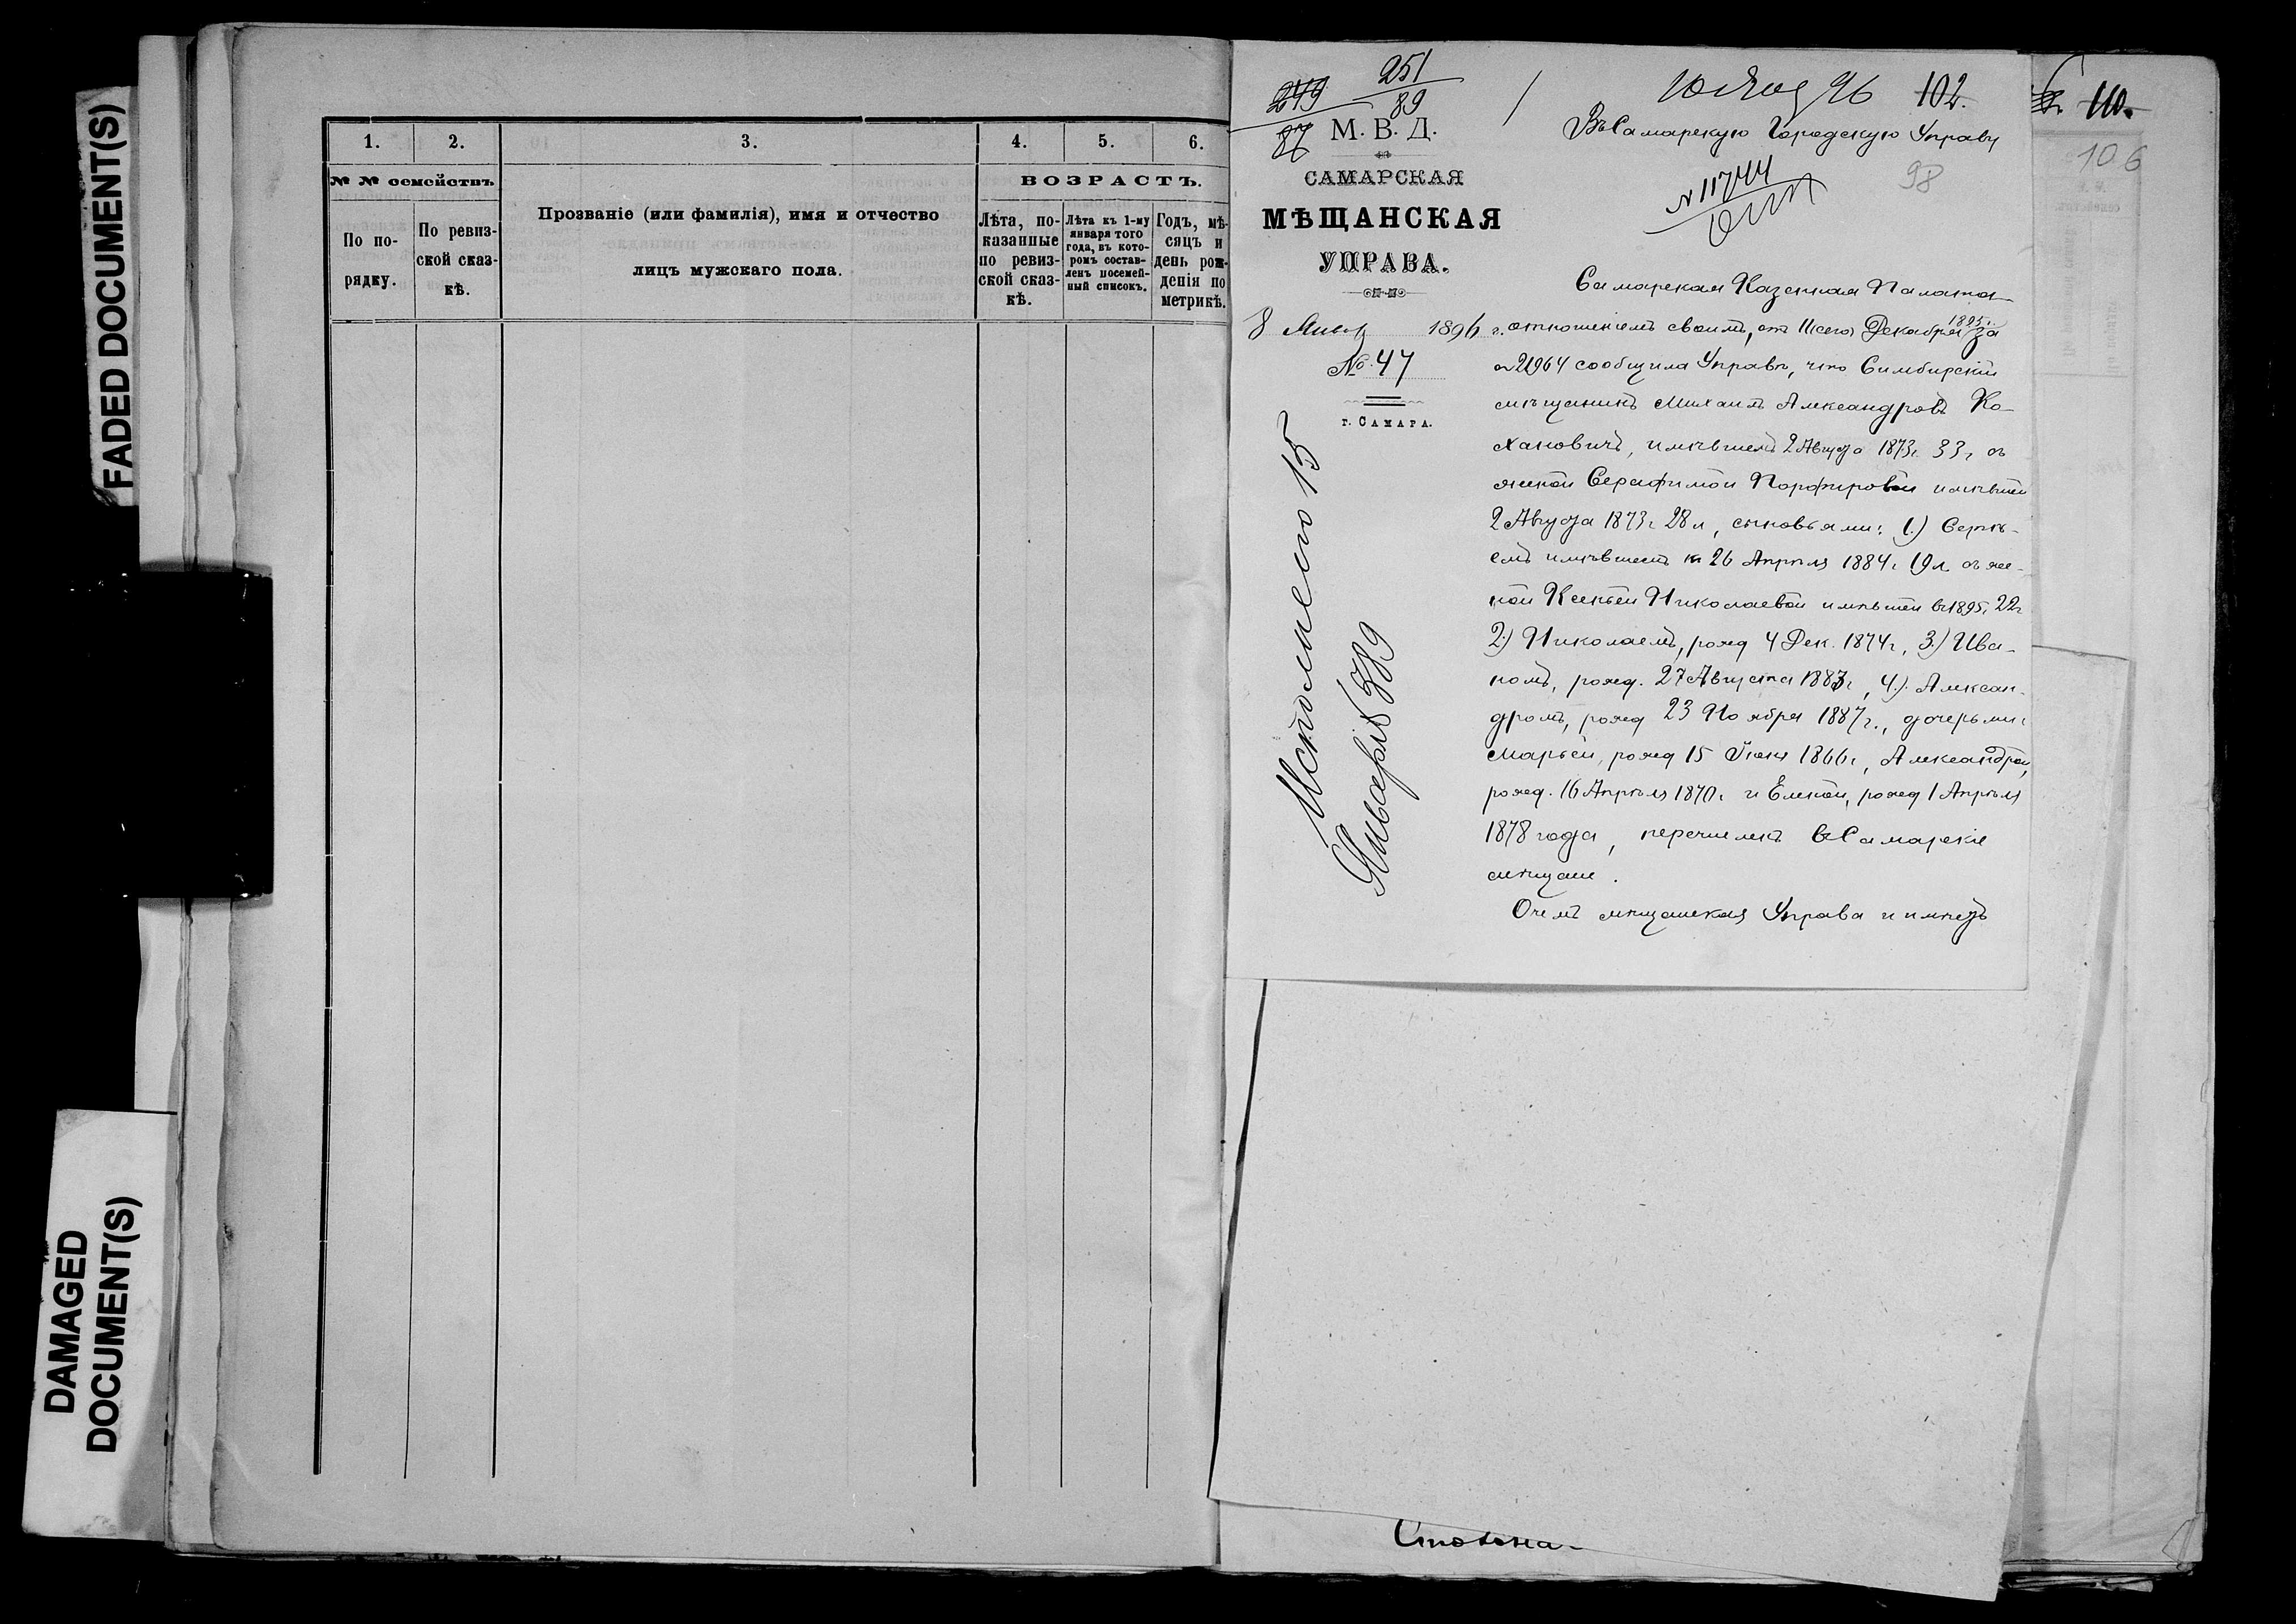 FADED DOCUMENT(S)
DAMAGED
DOCUMENT(S)
1.
2.
3.
4.
5.
6.
№ № семействъ
По по-
рядку.
По ревиз-
ской сказ-
кѣ.
Прозваніе (или фамилія), имя и отчество
лицъ мужскаго пола.
ВОЗРАСТЪ.
Лѣта, по-
казанные
по ревиз-
ской сказ-
кѣ.
Лѣта къ 1-му
января того
года, въ кото-
ромъ состав-
ленъ посемей-
ный списокъ.
Годъ, мѣ-
сяцъ и
день рож-
денія по
метрикѣ.
249
87
251
89
М. В. Д.
САМАРСКАЯ
МѢЩАНСКАЯ
УПРАВА.
8 Янв 1896 г.
№ 47
г. САМАРА.
Исполнено 15
Января 889
10 Янв 96 102.
Въ Самарскую Городскую Управу
N 11744
98
Самарская Казенная Палата
отношеніемъ своимъ, отъ 11 сего Декабря 1895 г. за
№ 21964 сообщила Управѣ, что Симбирскій
мѣщанинъ Михаилъ Александровъ Ко-
хановичъ, имѣвшій 2 Августа 1873 г. 33 г. съ
женой Серафимой Порфировой имѣвшей
2 Августа 1873 г. 28 л, сыновьями: 1.) Сергѣ-
емъ имѣвшемъ къ 26 Апрѣля 1884 г. 19 л. съ же-
ной Ксеньей Николаевой имѣвшей въ 1895 г. 22 г.
2.) Николаемъ, рожд 4 Дек. 1874 г., 3.) Ива-
номъ, рожд. 27 Августа 1883 г, 4.) Алексан-
дромъ, рожд 23 Ноября 1887 г., дочерьми:
Марьей, рожд 15 Іюня 1866 г, Александрой,
рожд. 16 Апрѣля 1870 г. и Еленой, рожд 1 Апрѣля
1878 года, перечисленъ въ Самарскіе
мѣщане.
О чемъ мѣщанская Управа и имѣетъ
110.
106